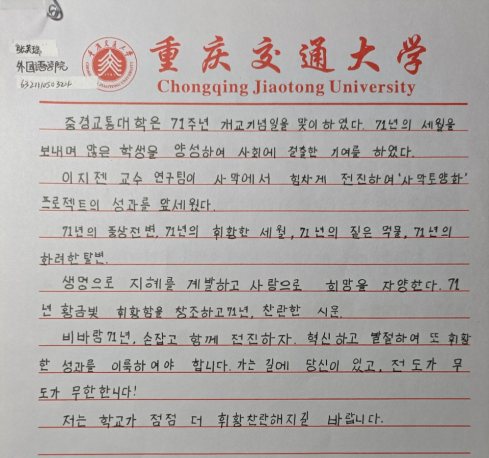 外国语学院
重庆交通大学
Chongqing Jiaotong University
중경교통대학은 71주년 개교기념일을 맞이하였다. 71년의 세월을
보내며 많은 학생을 양성하여 사회에 걸출한 기여를 하였다.
이지젠 교수 연구팀이 사막에서 힘차게 전진하여 '사막토양화'
프로젝트의 성과를 앞세웠다.
71년의 풍상전변, 71년의 휘황한 세월, 71년의 짙은 먹물, 71년의
화려한 탈변.
생명으로 지혜를 계발하고 사랑으로 희망을 자양한다. 71
년 황금빛 휘황함을 창조하고 71년, 찬란한 시운.
비바람 71년, 손잡고 함께 전진하자. 혁신하고 발절하여 또 휘황
한 성과를 이룩하여야 합니다. 가는 길에 당신이 있고, 전도가 무
도가 무한한니다!
저는 학교가 점점 더 휘황찬란해지길 바랍니다.